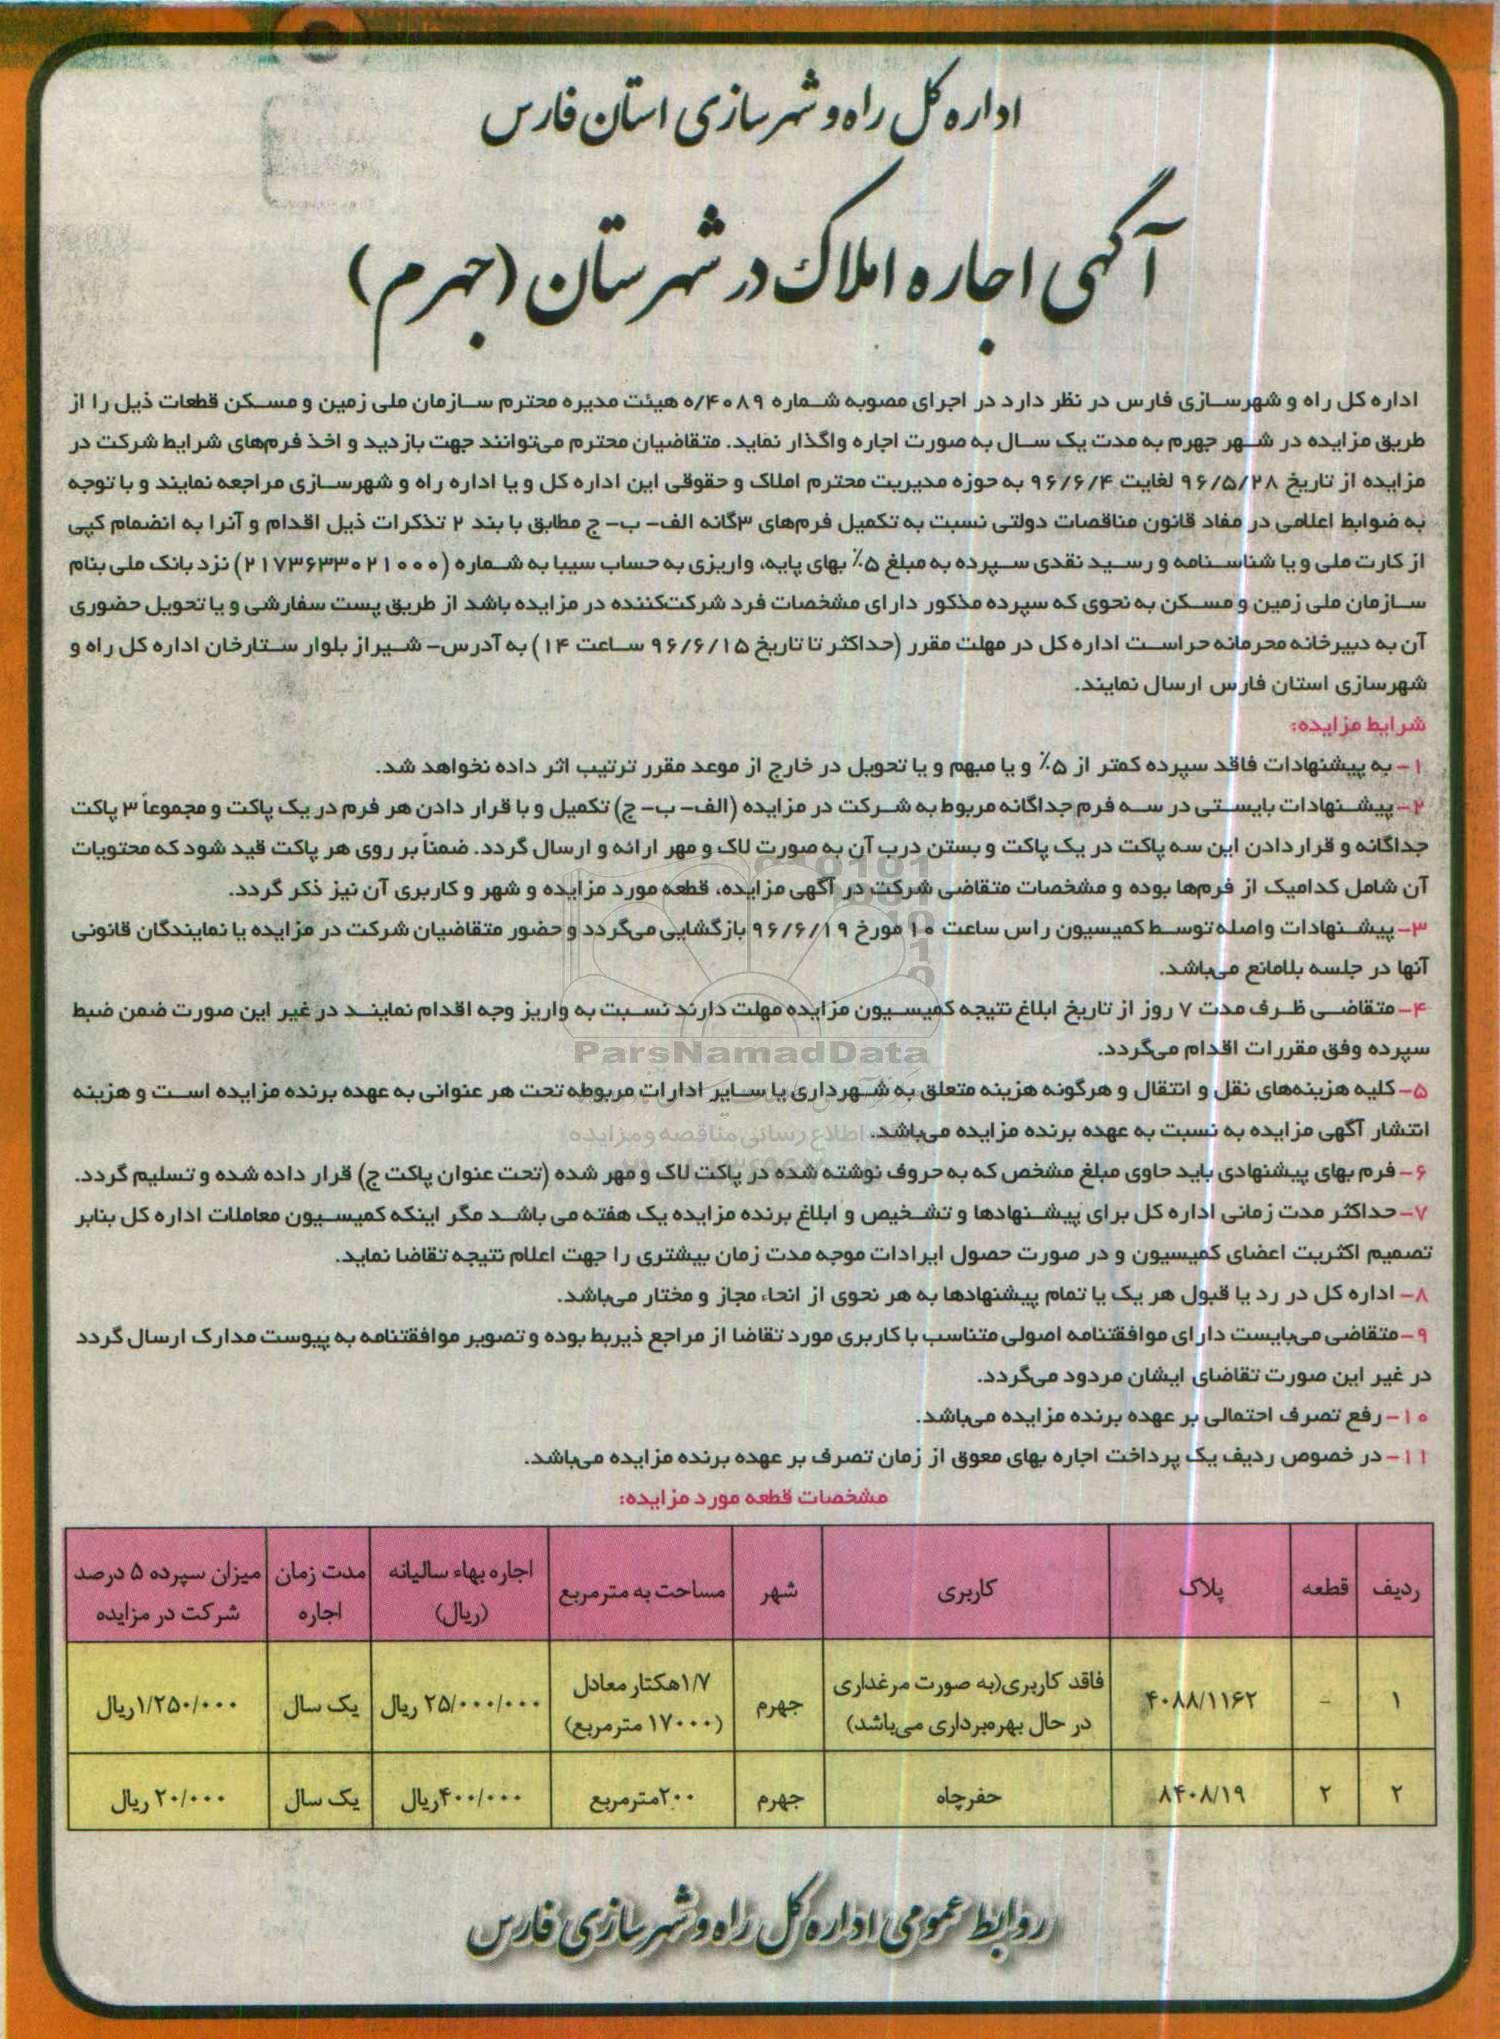 اداره کل راه و شهرسازی استان فارس
آگهی اجاره املاک در شهرستان (جهرم)
اداره کل راه و شهرسازی فارس در نظر دارد در اجرای مصوبه شماره ۴۰۸۹/ه هیئت مدیره محترم سازمان ملی زمین و مسکن قطعات ذیل را از
طریق مزایده در شهر جهرم به مدت یک سال به صورت اجاره واگذار نماید. متقاضیان محترم می‌توانند جهت بازدید و اخذ فرم‌های شرایط شرکت در
مزایده از تاریخ ۹۶/۵/۲۸ لغایت ۹۶/۶/۴ به حوزه مدیریت محترم املاک و حقوقی این اداره کل و یا اداره راه و شهرسازی مراجعه نمایند و با توجه
به ضوابط اعلامی در مفاد قانون مناقصات دولتی نسبت به تکمیل فرم‌های ۳گانه الف- ب- ج مطابق با بند ۲ تذکرات ذیل اقدام و آنرا به انضمام کپی
از کارت ملی و یا شناسنامه و رسید نقدی سپرده به مبلغ ۵٪ بهای پایه، واریزی به حساب سیبا به شماره (۲۱۷۳۶۳۳۰۲۱۰۰۰) نزد بانک ملی بنام
سازمان ملی زمین و مسکن به نحوی که سپرده مذکور دارای مشخصات فرد شرکت‌کننده در مزایده باشد از طریق پست سفارشی و یا تحویل حضوری
آن به دبیرخانه محرمانه حراست اداره کل در مهلت مقرر (حداکثر تا تاریخ ۹۶/۶/۱۵ ساعت ۱۴) به آدرس- شیراز بلوار ستارخان اداره کل راه و
شهرسازی استان فارس ارسال نمایند.
شرایط مزایده:
۱- به پیشنهادات فاقد سپرده کمتر از ۵٪ و یا مبهم و یا تحویل در خارج از موعد مقرر ترتیب اثر داده نخواهد شد.
۲- پیشنهادات بایستی در سه فرم جداگانه مربوط به شرکت در مزایده (الف- ب- ج) تکمیل و با قرار دادن هر فرم در یک پاکت و مجموعاً ۳ پاکت
جداگانه و قرار دادن این سه پاکت در یک پاکت و بستن درب آن به صورت لاک و مهر ارائه و ارسال گردد. ضمناً بر روی هر پاکت قید شود که محتویات
آن شامل کدامیک از فرم‌ها بوده و مشخصات متقاضی شرکت در آگهی مزایده، قطعه مورد مزایده و شهر و کاربری آن نیز ذکر گردد.
۳- پیشنهادات واصله توسط کمیسیون راس ساعت ۱۰ مورخ ۹۶/۶/۱۹ بازگشایی می‌گردد و حضور متقاضیان شرکت در مزایده یا نمایندگان قانونی
آنها در جلسه بلامانع می‌باشد.
۴- متقاضی ظرف مدت ۷ روز از تاریخ ابلاغ نتیجه کمیسیون مزایده مهلت دارند نسبت به واریز وجه اقدام نمایند در غیر این صورت ضمن ضبط
سپرده وفق مقررات اقدام می‌گردد.
ParsNamadData
۵- کلیه هزینه‌های نقل و انتقال و هرگونه هزینه متعلق به شهرداری یا سایر ادارات مربوطه تحت هر عنوانی به عهده برنده مزایده است و هزینه
انتشار آگهی مزایده به نسبت به عهده برنده مزایده می‌باشد.
اطلاع رسانی مناقصه و مزایده
۶- فرم بهای پیشنهادی باید حاوی مبلغ مشخص که به حروف نوشته شده در پاکت لاک و مهر شده (تحت عنوان پاکت ج) قرار داده شده و تسلیم گردد.
۷- حداکثر مدت زمانی اداره کل برای پیشنهادها و تشخیص و ابلاغ برنده مزایده یک هفته می باشد مگر اینکه کمیسیون معاملات اداره کل بنابر
تصمیم اکثریت اعضای کمیسیون و در صورت حصول ایرادات موجه مدت زمان بیشتری را جهت اعلام نتیجه تقاضا نماید.
۸- اداره کل در رد یا قبول هر یک یا تمام پیشنهادها به هر نحوی از انحاء مجاز و مختار می‌باشد.
۹- متقاضی می‌بایست دارای موافقتنامه اصولی متناسب با کاربری مورد تقاضا از مراجع ذیربط بوده و تصویر موافقتنامه به پیوست مدارک ارسال گردد
در غیر این صورت تقاضای ایشان مردود می‌گردد.
۱۰- رفع تصرف احتمالی بر عهده برنده مزایده می‌باشد.
۱۱- در خصوص ردیف یک پرداخت اجاره بهای معوق از زمان تصرف بر عهده برنده مزایده می‌باشد.
مشخصات قطعه مورد مزایده:
ردیف قطعه پلاک کاربری شهر مساحت به مترمربع اجاره بهاء سالیانه (ریال) مدت زمان اجاره میزان سپرده ۵ درصد شرکت در مزایده
۱ - ۴۰۸۸/۱۱۶۲ فاقد کاربری(به صورت مرغداری در حال بهره‌برداری می‌باشد) جهرم ۱/۷هکتار معادل (۱۷۰۰۰ مترمربع) ۲۵/۰۰۰/۰۰۰ ریال یک سال ۱/۲۵۰/۰۰۰ریال
۲ ۲ ۸۴۰۸/۱۹ حفرچاه جهرم ۲۰۰مترمربع ۴۰۰/۰۰۰ریال یک سال ۲۰/۰۰۰ ریال
روابط عمومی اداره کل راه و شهرسازی فارس